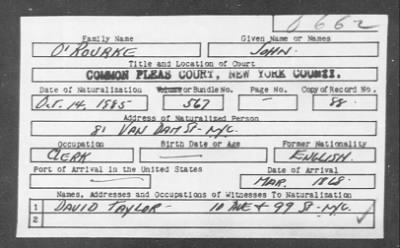 Family Name Given Name or Names
O'ROURKE JOHN.
Title and Location of Court
COMMON PLEAS COURT, NEW YORK COUNTY.
Date of Naturalization Volume or Bundle No. Page No. Copy of Record No.
Oct. 14, 1885 567 - 88.
Address of Naturalized Person
81 VAN DAM ST- NYC.
Occupation Birth Date or Age Former Nationality
CLERK ENGLISH.
Port of Arrival in the United States Date of Arrival
MAR. 1868.
Names, Addresses and Occupations of Witnesses To Naturalization
1 DAVID TAYLOR- 10 AVE + 99 St-NYC.
2